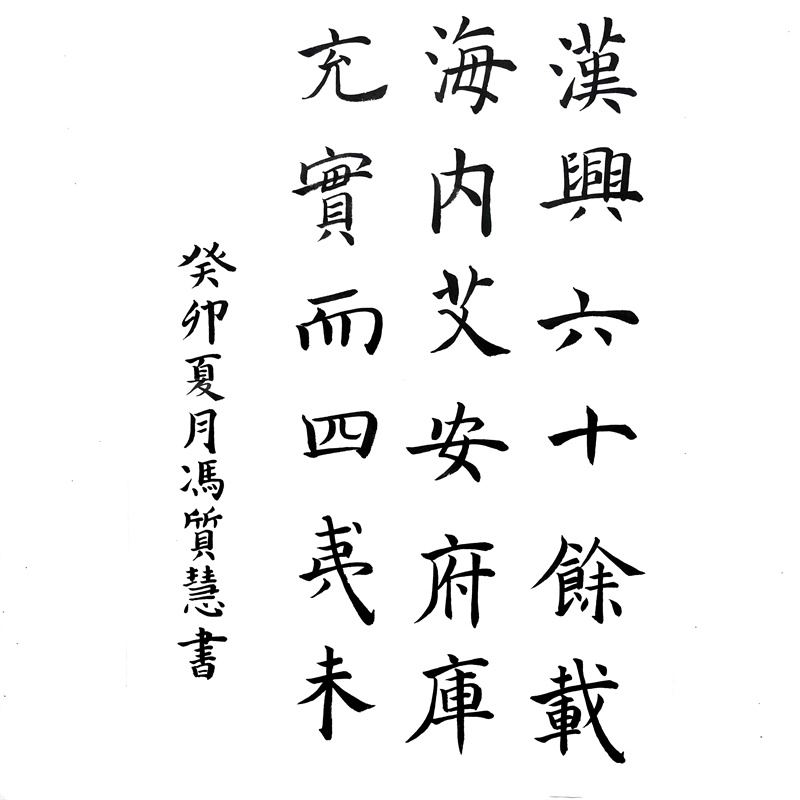 漢興六十餘載
海内艾安府庫
充實而四夷未
癸卯夏月馮質慧書